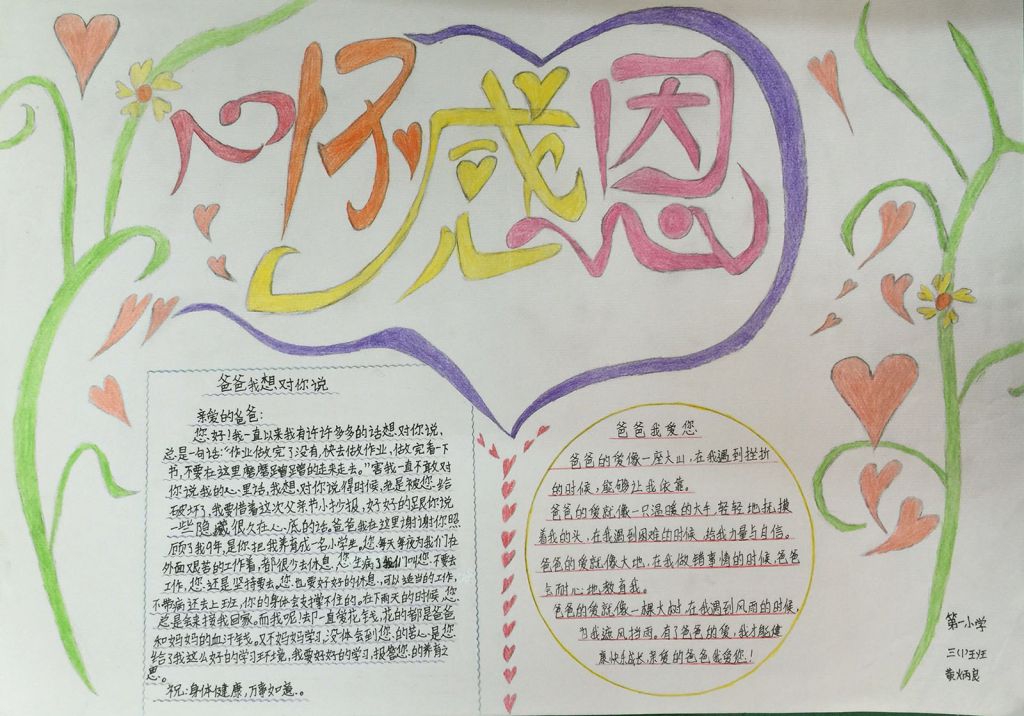 怀感恩
爸爸我想对你说
亲爱的爸爸：
您好！我一直以来我有许许多多的话想对你说，
总是一句话：“作业做完了没有，快去做作业，做完看一下
书，不要在这里磨磨蹭蹭的走来走去。”害我一直不敢对
你说我的心里话，我想对你说得时候，老是被您给
破坏了，我要借着这次父亲节小抄报，好好的跟你说
一些隐藏很久在心底的话。爸爸我在这里谢谢你照
顾了我9年，是你把我养育成一名小学生。您每天每夜为我们在
外面艰苦的工作着，都很少去休息，您生病了我们叫您不要去
工作，您还是坚持要去。您也要好好的休息，可以适当的工作，
不带病还去上班，你的身体会支撑不住的。在下雨天的时候，您
总是会来接我回家。而我呢！却一直爱花钱，花的都是爸爸
和妈妈的血汗钱。又不妈妈学习，没体会到您的苦心是您
给了我这么好的学习环境，我要好好的学习，报答您的养育之
恩。
祝：身体健康，万事如意。
爸爸我爱您
爸爸的爱像一座大山，在我遇到挫折
的时候，能够让我依靠。
爸爸的爱就像一只温暖的大手，轻轻地抚摸
着我的头，在我遇到困难的时候，给我力量与自信。
爸爸的爱就像大地，在我做错事情的时候，爸爸
点耐心地教育我。
爸爸的爱就像一棵大树，在我遇到风雨的时候，
为我遮风挡雨。有了爸爸的爱，我才能健
康快乐成长，亲爱的爸爸我爱您！
第一小学
三(1)班
黄炳良